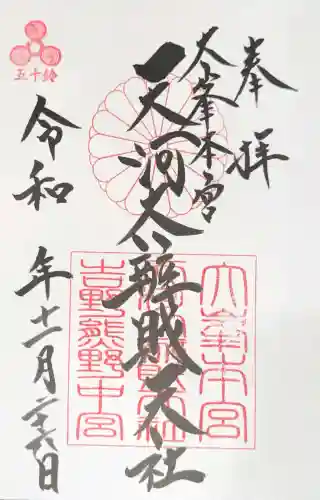 奉拝
大峯本宮
天河大辨財天社
令和 年十一月二十六日
五十鈴
大峯本宮
吉野熊野中宮